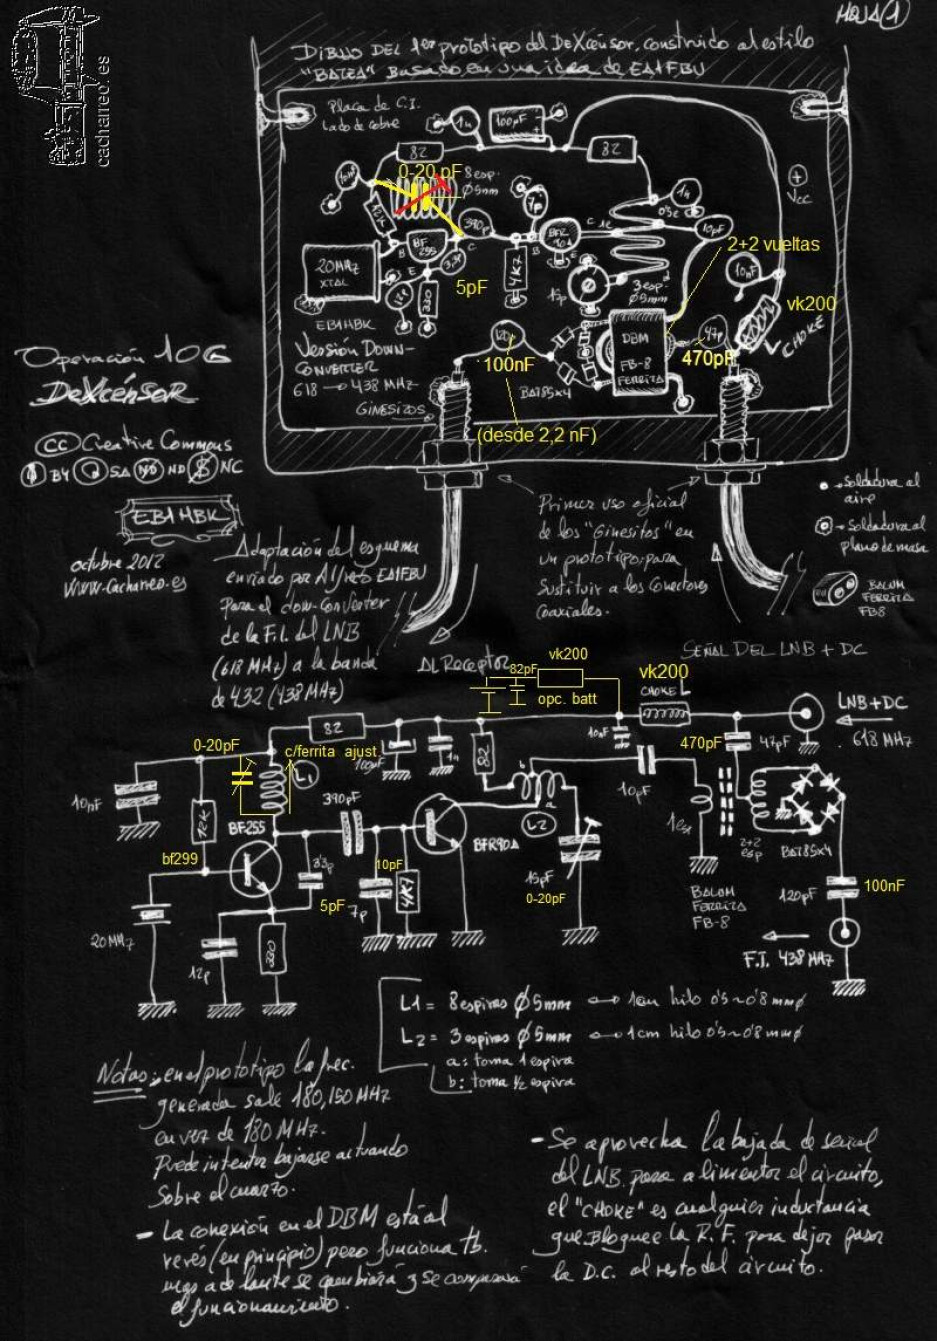 HOJA 1
cacharreo.es
DIBUJO DEL 1er prototipo del DeXcensor, construido al estilo
"BATEA" Basado en una idea de EA1FBU
Placa de C.I.
Lado de cobre
1n
100µF
+
82
82
0-20 pF
8 esp.
Ø5mm
10nF
12K
390p
7p
BFR
90A
1n
0'5 e
10pF
+
Vcc
2+2 vueltas
20MHz
XTAL
BF
255
B
E
C
3,3p
5pF
4K7
B
C
1e
E
15p
3 esp.
Ø5mm
10nF
vk200
CHOKE
12p
220
EB1HBK
Versión DOWN-
CONVERTER
618 → 438 MHz
GINESITOS
120p
100nF
BAT85x4
DBM
FB-8
FERRITA
47p
470pF
(desde 2,2 nF)
Operación 10G
DeXcensor
CC Creative Commons
BY SA ND NC
EB1HBK
octubre 2012
www.cacharreo.es
Adaptación del esquema
enviado por Alfredo EA1FBU
Para el down-Converter
de la F.I. del LNB
(618 MHz) a la banda
de 432 (438 MHz)
Primer uso oficial
de los "Ginesitos" en
un prototipo para
sustituir a los Conectores
coaxiales.
• - Soldadura al
aire
- Soldadura al
plano de masa
BALUM
FERRITA
FB8
AL Receptor
SEÑAL DEL LNB + DC
vk200
82pF
opc. batt
vk200
CHOKE L
LNB+DC
618 MHz
82
0-20pF
c/ferrita ajust
L1
100µF
1n
82
10nF
470pF
47pF
10nF
12K
BF255
390pF
b
a
L2
10pF
1 esp
2+2
esp
BAT85x4
bf299
3'3p
10pF
BFR90A
5pF
7p
4K7
15pF
0-20pF
BALUM
FERRITA
FB-8
120pF
100nF
20MHz
12p
220
F.I. 438 MHz
L1 = 8 espiras Ø5mm ↔ 1cm hilo 0'5~0'8 mmø
L2 = 3 espiras Ø5mm ↔ 1cm hilo 0'5~0'8 mmø
a: toma 1 espira
b: toma ½ espira
Notas: en el prototipo la frec.
generada sale 180,150 MHz
en vez de 180 MHz.
Puede intentar bajarse actuando
sobre el cuarzo.
- La conexión en el DBM está al
revés (en principio) pero funciona tb.
mas adelante se cambiará y se comparará
el funcionamiento.
- Se aprovecha la bajada de señal
del LNB para alimentar el circuito,
el "CHOKE" es cualquier inductancia
que Bloquee la R.F. para dejar pasar
la D.C. al resto del circuito.